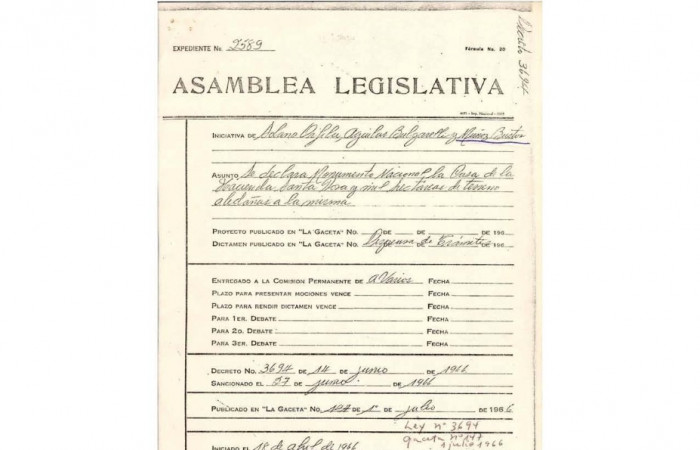 Decreto 3694
EXPEDIENTE No. 2589 Fórmula No. 20
ASAMBLEA LEGISLATIVA
INICIATIVA DE Solano Aguilar y Muñoz Bustos
ASUNTO Se declara Monumento Nacional la Casa de la
Hacienda Santa Rosa y mil hectáreas de terreno
aledañas a la misma
PROYECTO PUBLICADO EN "LA GACETA" No. DE DE 196
DICTAMEN PUBLICADO EN "LA GACETA" No. Dispensa de Trámites 196
ENTREGADO A LA COMISION PERMANENTE DE a Varios FECHA
PLAZO PARA PRESENTAR MOCIONES VENCE FECHA
PLAZO PARA RENDIR DICTAMEN VENCE FECHA
PARA 1ER. DEBATE FECHA
PARA 2o. DEBATE FECHA
PARA 3ER. DEBATE FECHA
DECRETO No. 3694 DE 14 DE junio DE 1966
SANCIONADO EL 27 DE junio DE 1966
PUBLICADO EN "LA GACETA" No. 147 DE 1º DE julio DE 1966
Ley nº 3694
gaceta nº 147
1 julio 1966
INICIADO EL 18 de abril de 1966